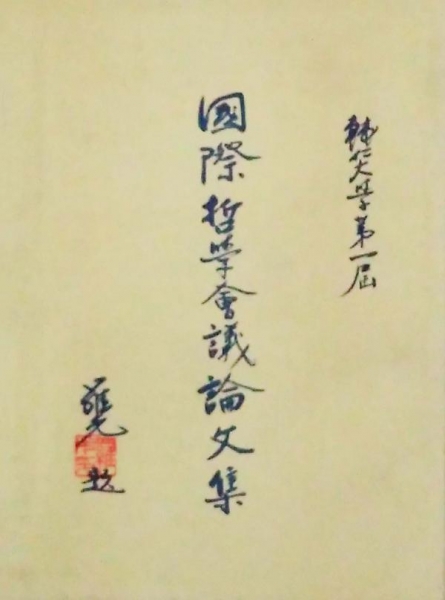 輔仁大學第一屆
國際哲學會議論文集
羅光題